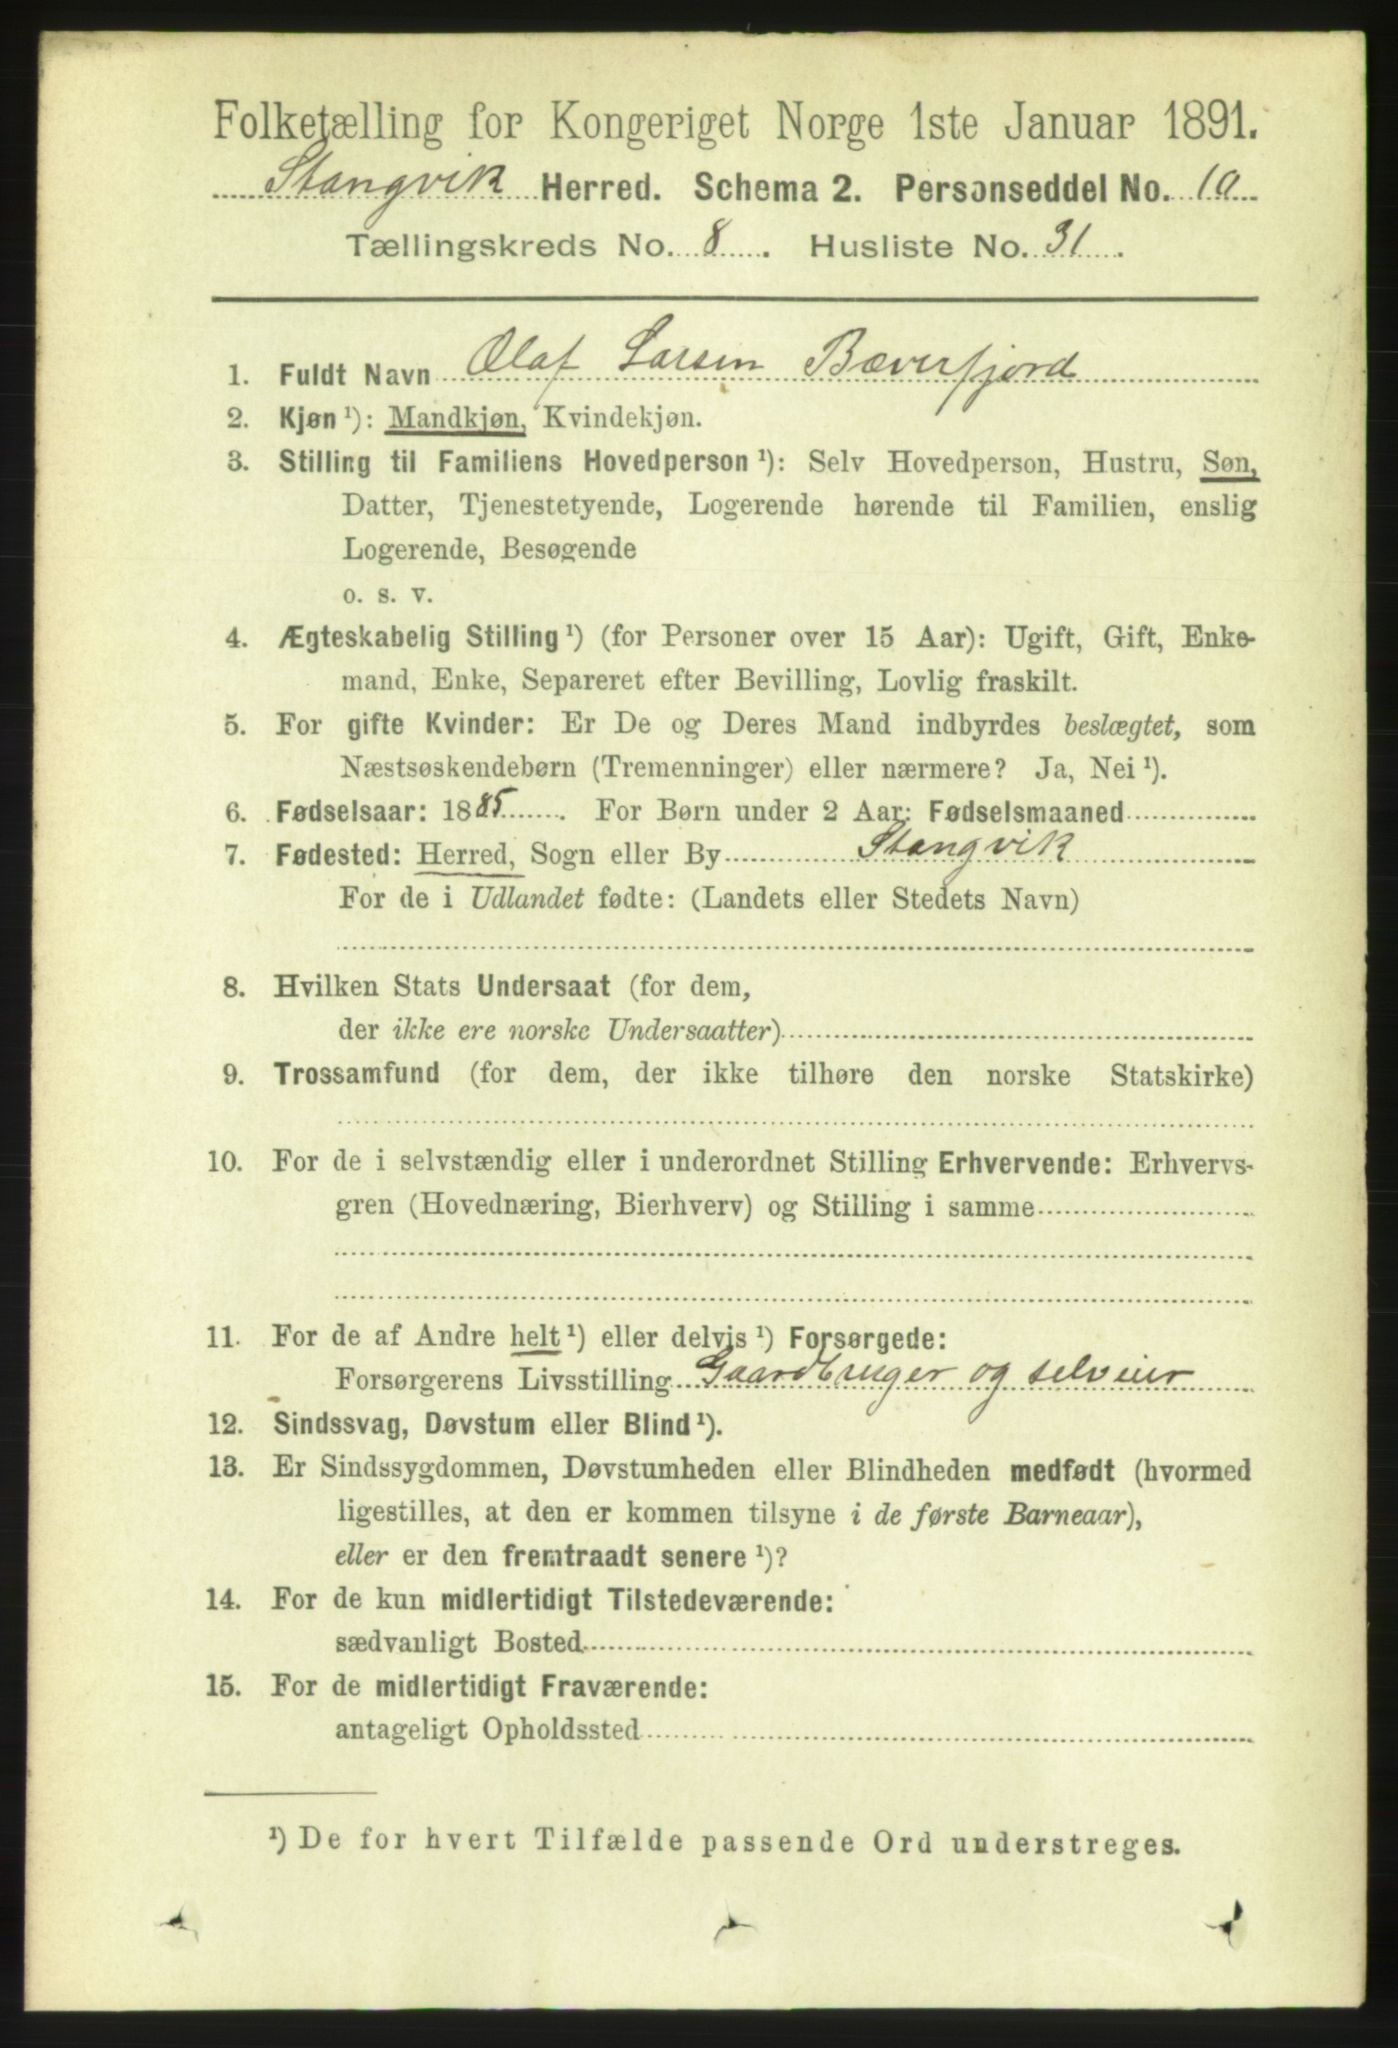 Folketælling for Kongeriget Norge 1ste Januar 1891.
Stangvik Herred. Schema 2. Personseddel No. 10
Tællingskreds No. 8. Husliste No. 31.
1. Fuldt Navn Olaf Larsen Bæverfjord
2. Kjøn ¹): Mandkjøn, Kvindekjøn.
3. Stilling til Familiens Hovedperson ¹): Selv Hovedperson, Hustru, Søn,
Datter, Tjenestetyende, Logerende hørende til Familien, enslig
Logerende, Besøgende
o. s. v.
4. Ægteskabelig Stilling ¹) (for Personer over 15 Aar): Ugift, Gift, Enke-
mand, Enke, Separeret efter Bevilling, Lovlig fraskilt.
5. For gifte Kvinder: Er De og Deres Mand indbyrdes beslægtet, som
Næstsøskendebørn (Tremenninger) eller nærmere? Ja, Nei ¹).
6. Fødselsaar: 1885. For Børn under 2 Aar: Fødselsmaaned
7. Fødested: Herred, Sogn eller By Stangvik
For de i Udlandet fødte: (Landets eller Stedets Navn)
8. Hvilken Stats Undersaat (for dem,
der ikke ere norske Undersaatter)
9. Trossamfund (for dem, der ikke tilhøre den norske Statskirke)
10. For de i selvstændig eller i underordnet Stilling Erhvervende: Erhvervs-
gren (Hovednæring, Bierhverv) og Stilling i samme
11. For de af Andre helt ¹) eller delvis ¹) Forsørgede:
Forsørgerens Livsstilling Gaardbruger og selveier
12. Sindssvag, Døvstum eller Blind ¹).
13. Er Sindssygdommen, Døvstumheden eller Blindheden medfødt (hvormed
ligestilles, at den er kommen tilsyne i de første Barneaar),
eller er den fremtraadt senere ¹)?
14. For de kun midlertidigt Tilstedeværende:
sædvanligt Bosted
15. For de midlertidigt Fraværende:
antageligt Opholdssted
¹) De for hvert Tilfælde passende Ord understreges.